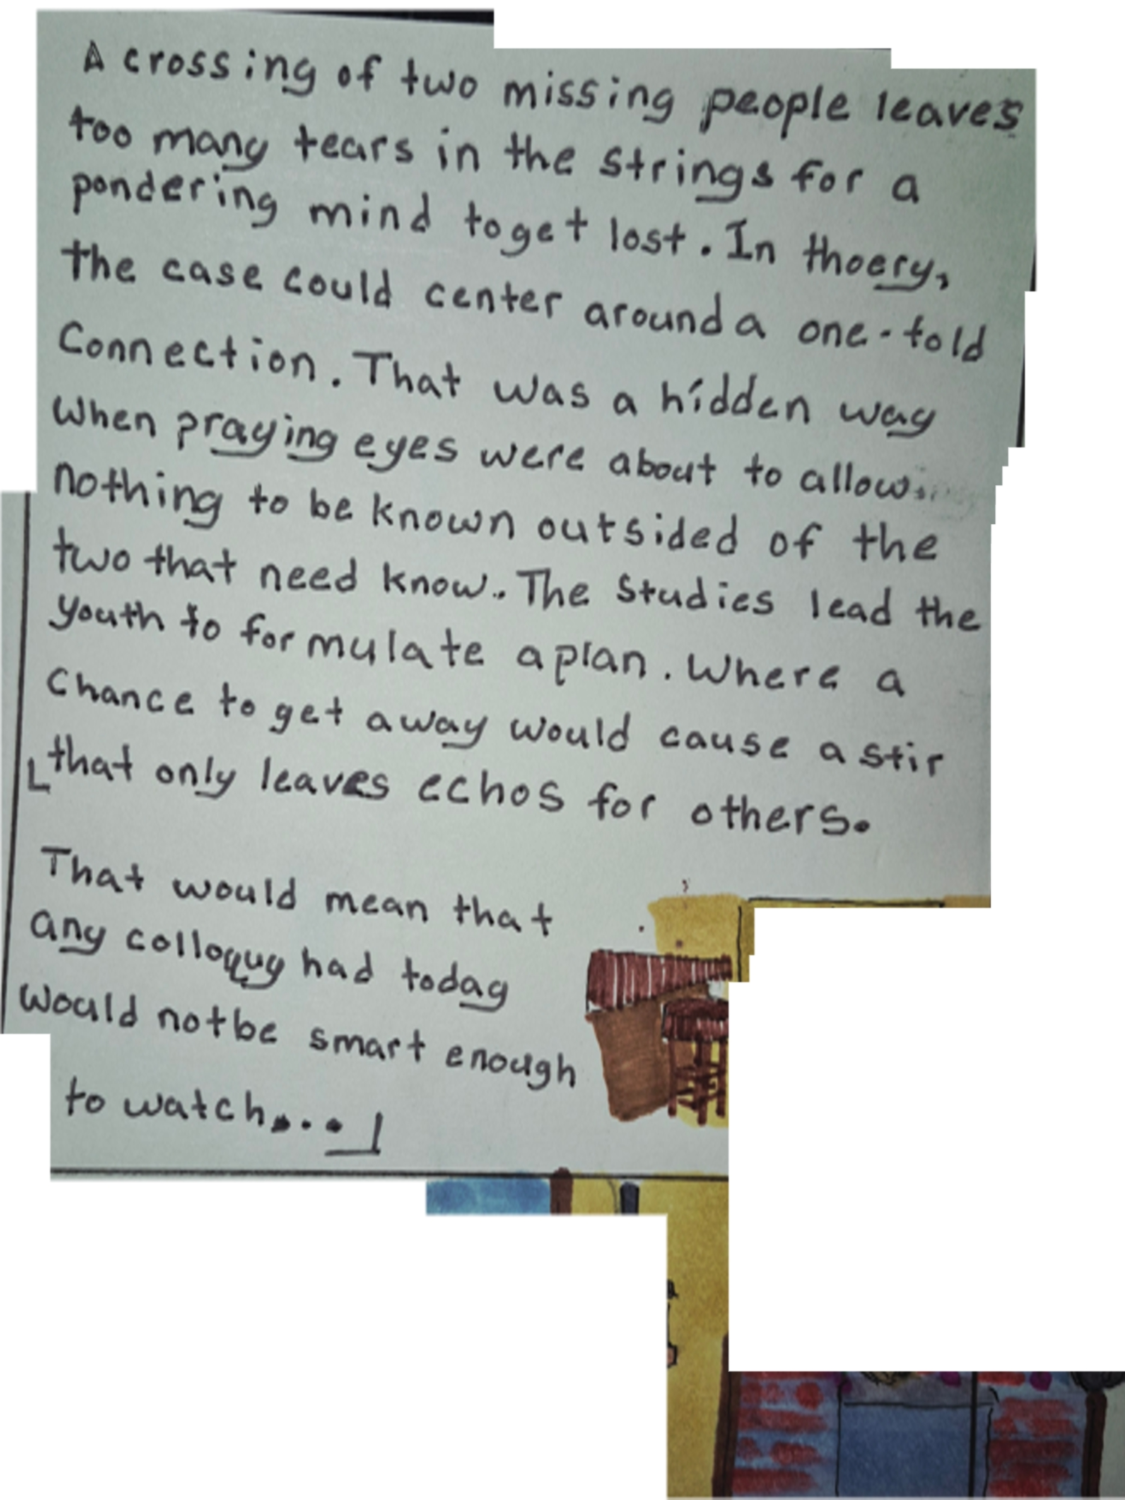 A crossing of two missing people leaves
too many tears in the strings for a
pondering mind to get lost. In thoery,
the case could center around a one-told
Connection. That was a hidden way
when praying eyes were about to allow..
nothing to be known outsided of the
two that need know.. The studies lead the
youth to formulate a plan. Where a
chance to get away would cause a stir
that only leaves echos for others.
That would mean that
any colloquy had today
would not be smart enough
to watch...